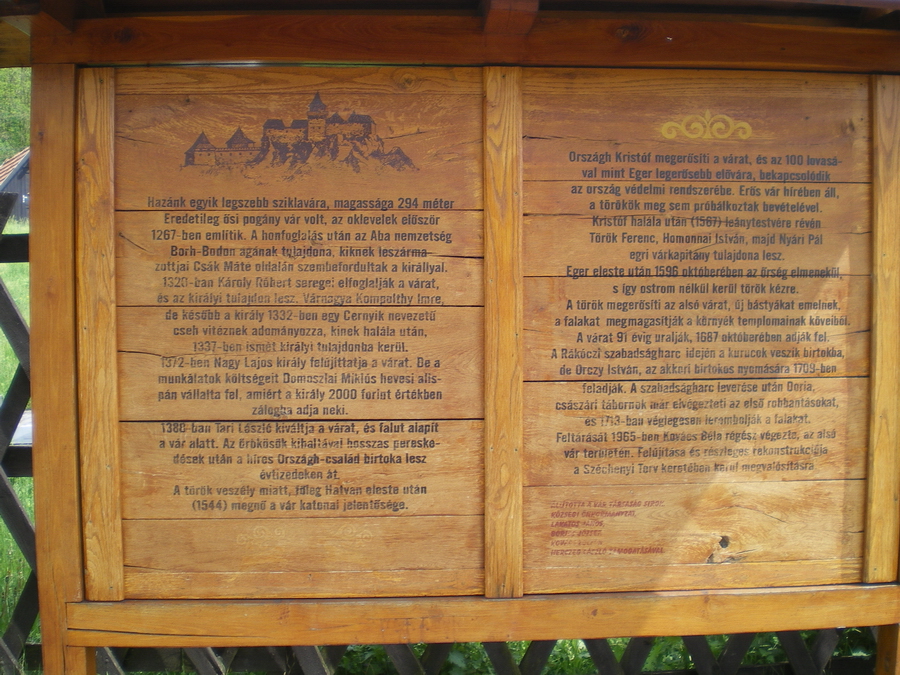 Hazánk egyik legszebb sziklavára, magassága 294 méter
Eredetileg ősi pogány vár volt, az oklevelek először
1267-ben említik. A honfoglalás után az Aba nemzetség
Borh-Bodon ágának tulajdona, kiknek leszárma-
zottjai Csák Máté oldalán szembefordultak a királlyal.
1320-ban Károly Róbert seregei elfoglalják a várat,
és az királyi tulajdon lesz. Várnagya Kompolthy Imre,
de később a király 1332-ben egy Cernyik nevezetű
cseh vitéznek adományozza, kinek halála után,
1337-ben ismét királyi tulajdonba kerül.
1372-ben Nagy Lajos király felújíttatja a várat. De a
munkálatok költségeit Domoszlai Miklós hevesi alis-
pán vállalta fel, amiért a király 2000 forint értékben
zálogba adja neki.
1380-ban Tari László kiváltja a várat, és falut alapít
a vár alatt. Az örökösök kihaltával hosszas pereske-
dések után a híres Országh-család birtoka lesz
évtizedeken át.
A török veszély miatt, főleg Hatvan eleste után
(1544) megnő a vár katonai jelentősége.
Országh Kristóf megerősíti a várat, és az 100 lovasá-
val mint Eger legerősebb elővára, bekapcsolódik
az ország védelmi rendszerébe. Erős vár hírében áll,
a törökök meg sem próbálkoztak bevételével.
Kristóf halála után (1567) leánytestvére révén
Török Ferenc, Homonnai István, majd Nyári Pál
egri várkapitány tulajdona lesz.
Eger eleste után 1596 októberében az őrség elmenekül,
s így ostrom nélkül kerül török kézre.
A török megerősíti az alsó várat, új bástyákat emelnek,
a falakat megmagasítják a környék templomainak köveiből.
A várat 91 évig uralják, 1687 októberében adják fel.
A Rákóczi szabadságharc idején a kurucok veszik birtokba,
de Orczy István, az akkori birtokos nyomására 1709-ben
feladják. A szabadságharc leverése után Doria,
császári tábornok már elvégezteti az első robbantásokat,
és 1713-ban véglegesen lerombolják a falakat.
Feltárását 1965-ben Kovács Béla régész végezte, az alsó
vár területén. Felújítása és részleges rekonstrukciója
a Széchenyi Terv keretében kerül megvalósításra